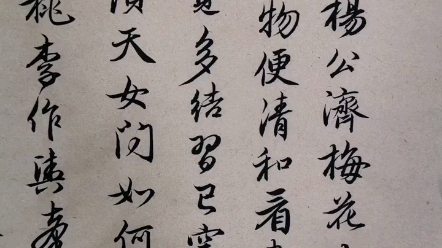 楊公濟梅花
物便清和看
多結習已空
天女問如何
桃李作輿臺